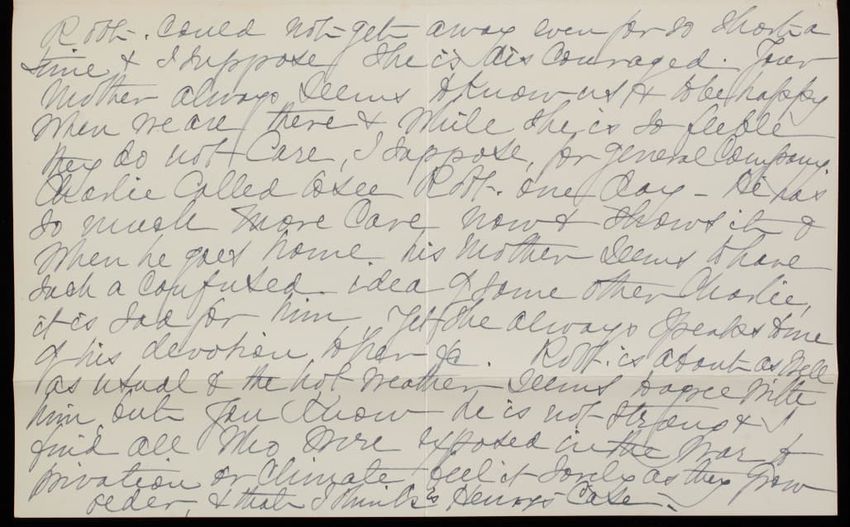 Robt. could not get away even for so short a
time & I suppose she is discouraged. Your
Mother always seems to know us & to be happy
when we are there & while she is so feeble
they do not care, I suppose, for general company.
Charlie called to see Robt. one day - He has
so much more care now & shows it &
when he goes home his Mother seems to have
such a confused idea of some other Charlie,
it is sad for him, yet she always speaks to me
of his devotion to her &c. Robt. is about as well
as usual & the hot weather seems to agree with
him, but you know he is not strong & I
find all who were exposed in the War to
privation or climate feel it sorely as they grow
older, & that I think is Henrys case.